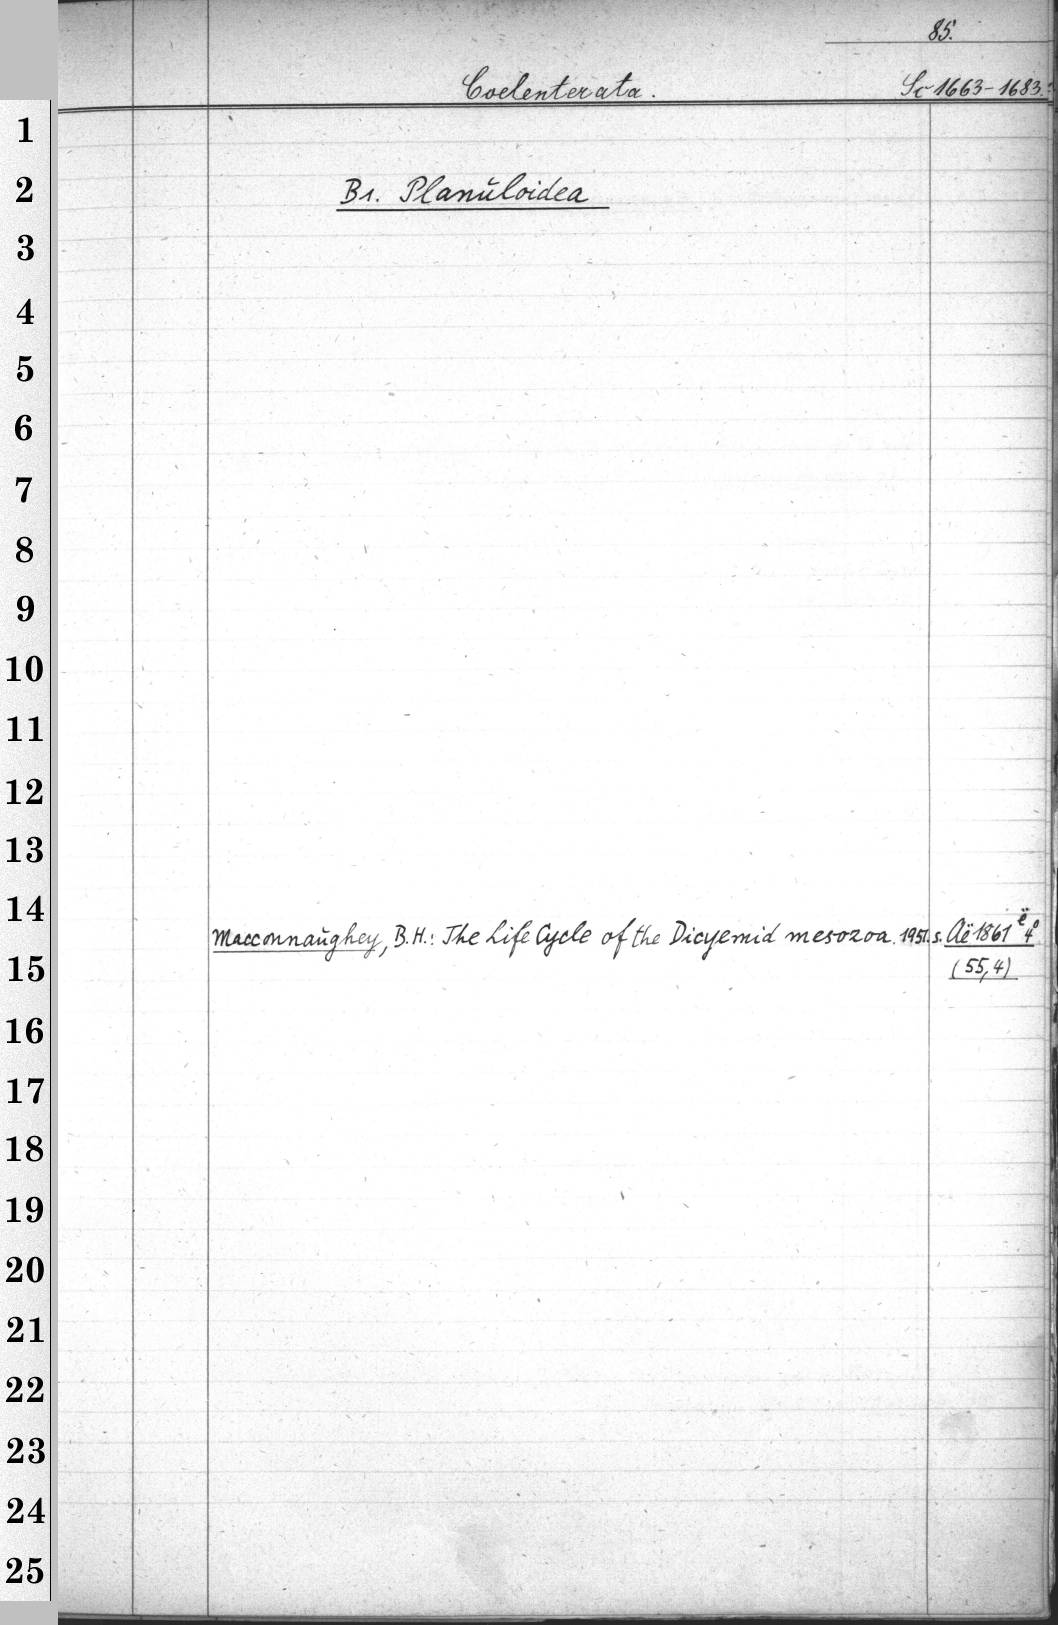 85.
Coelenterata. Sc 1663-1683.
1
2
B1. Planŭloidea
3
4
5
6
7
8
9
10
11
12
13
14
Macconnaŭghey, B.H.: The Life Cycle of the Dicyemid mesozoa. 1951. s. Aë 1861 ë 4°
15
(55,4)
16
17
18
19
20
21
22
23
24
25